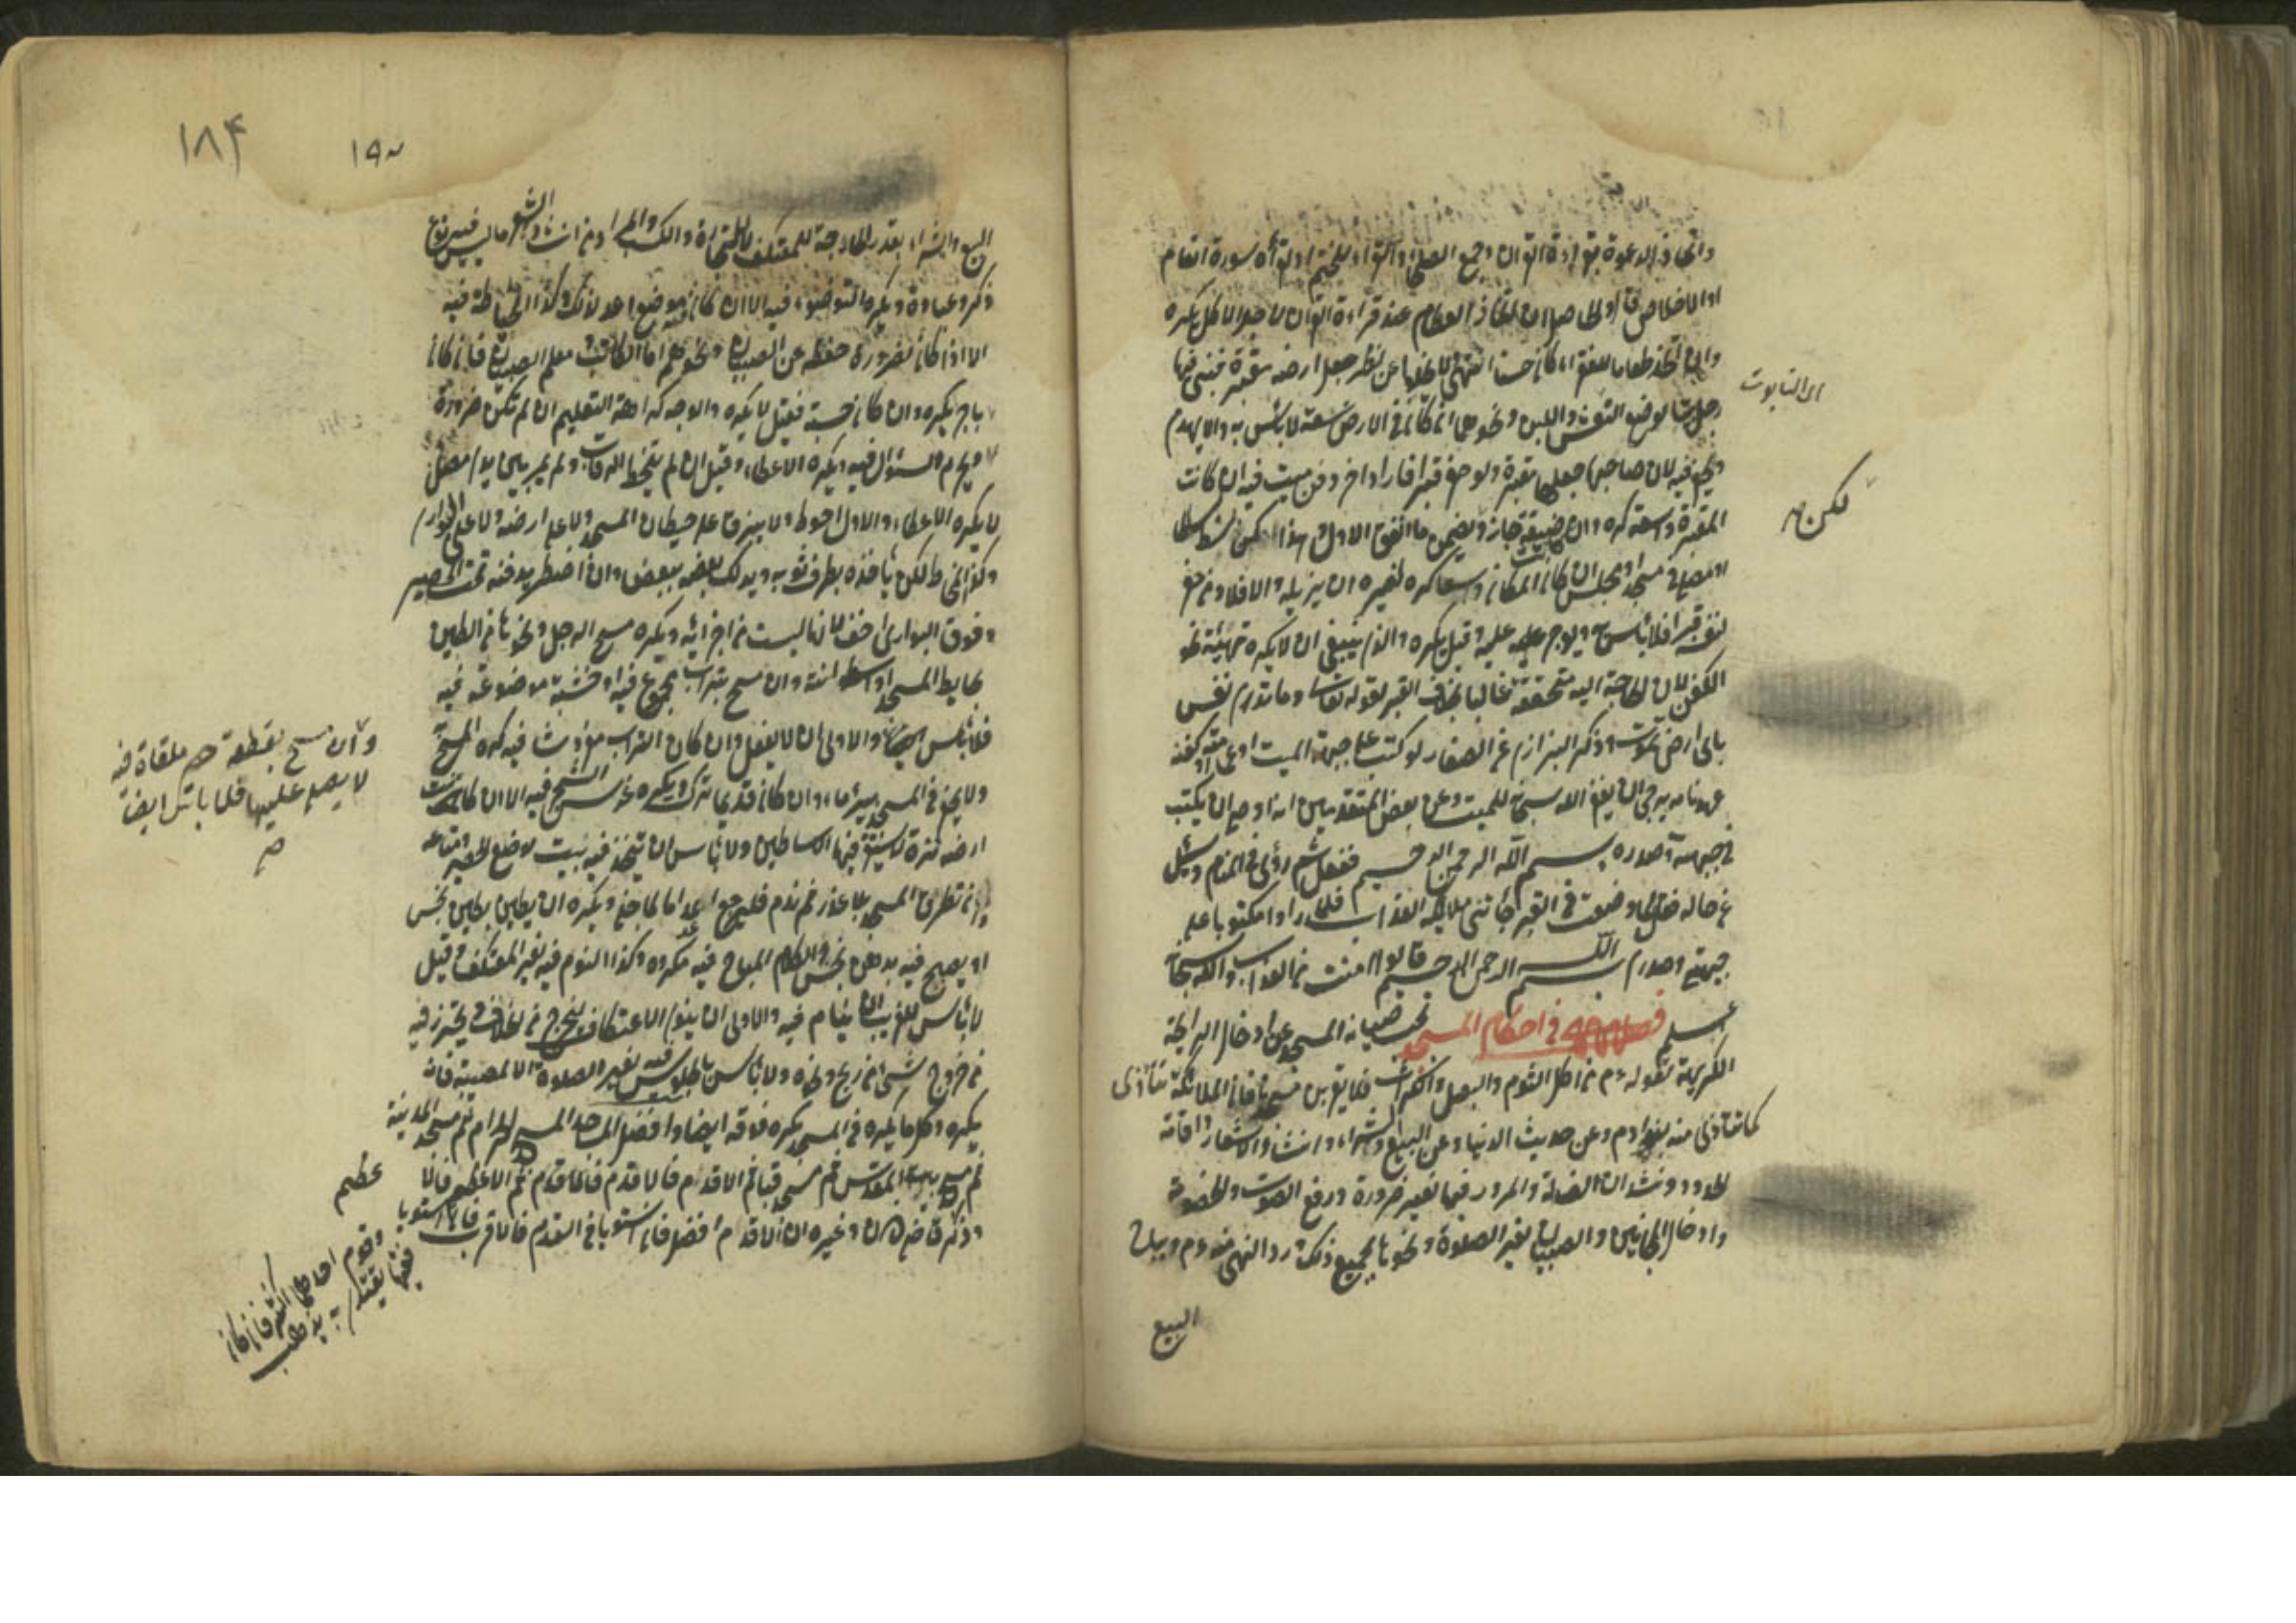 واتخاذ الدعوة بقراءة القرآن وجمع الصلحاء والقراء للختم او لقراءة سورة انعام
او الاخلاص فالحاصل ان اتخاذ الطعام عند قراءة القرآن لاجل الاكل يكره
وان اتخذ طعاما للفقراء كان حسنا انتهى ولا يخلوا عن نظر رجل جعل ارضه مقبرة فبنى فيها
رجل بيتا لوضع النعش واللبن ونحوهما ان كان في الارض سعة لا بأس به والا يهدم
ويدفن فيه لان صاحبها جعلها مقبرة ولو حفر قبرا فاراد اخر دفن ميت فيه ان كانت
المقبرة واسعة كره وان كانت ضيقة جاز ويضمن ما انفق الاول وهذا كمن بسط بساطا
او مصلى في مسجد او مجلس ان كان المكان واسعا كره لغيره ان يزيله والا فلا ومن حفر
لنفسه قبرا فلا بأس به ويؤجر عليه وقيل يكره والذي ينبغي ان لا يكره تهيئة نحو
الكفن لان الحاجة اليه متحققة غالبا بخلاف القبر لقوله تعالى وما تدري نفس
باى ارض تموت وذكر البزازي عن الصفار لو كتب على جبهة الميت او عمامته او كفنه
عهدنامه يرجى ان يغفر الله سبحانه للميت وعن بعض المتقدمين انه اوصى ان يكتب
في جبهته وصدره بسم الله الرحمن الرحيم ففعل ثم رؤى في المنام وسئل
عن حاله فقال لما وضعت في القبر جأتني ملائكة العذاب فلما رأوا مكتوبا على
جبهتي وصدري بسم الله الرحمن الرحيم قالوا امنت من العذاب والله سبحانه
اعلم فصل في احكام المسجد تجب صيانة المسجد عن ادخال الرائحة
الكريهة لقوله عم من اكل الثوم والبصل والكراث فلا يقربن مسجدنا فان الملائكة تتأذى
كما تتأذى منه بنو ادم وعن حديث الدنيا وعن البيع والشراء وانشاد الاشعار واقامة
الحدود ونشدان الضالة والمرور فيها لغير ضرورة ورفع الصوت والخصومة
وادخال المجانين والصبيان لغير الصلوة ونحوها لجميع ذلك ورد النهي عنه عم ويباح
البيع
الى التابوت
لكن
١٨۴
البيع والشراء بقدر الحاجة للمعتكف لا للتجارة والكسب والمراد من انشاد الشعر ما ليس فيه نوع
ذكر وعبادة ويكره التوضوء فيه الا ان كان فيه موضع اعد لذلك وكذا الخياطة فيه
الا اذا كان لضرورة حفظه عن الصبيان ونحوهم اما الكاتب ومعلم الصبيان فان كان
باجر يكره وان كان حسبة فقيل لا يكره والوجه كراهة التعليم ان لم تكن ضرورة
ويحرم السؤال فيه ويكره الاعطاء وقيل ان لم يتخط الرقاب ولم يمر بين يدي مصلى
لا يكره الاعطاء والاول احوط ولا يبزق على حيطان المسجد ولا على ارضه ولا على البوارى
وكذا المخاط لكن يأخذه بطرف ثوبه ويدلك بعضه ببعض وان اضطر يدفنه تحت الحصير
وفوق البوارى اخف لانها ليست من اجزائه ويكره مسح الرجل ونحوها من الطين
بحايط المسجد او اسطوانته وان مسح بتراب مجموع فيه او خشبة موضوعة فيه
فلا بأس به والاولى ان لا يفعل وان كان التراب مفروشا فيه كره المسح
ولا يحفر في المسجد بئر ماء وان كان قديما ترك ويكره غرس الشجر فيه الا ان كانت
ارضه نزة لا تستقر فيها الاساطين ولا بأس ان يتخذ فيه بيت لوضع الحصير ومتاعه
ومن تطرق المسجد بلا عذر ثم ندم فليرجع اعداما لما جنى ويكره ان يطين بطين نجس
او يصبح فيه بدهن نجس والكلام المباح فيه مكروه وكذا النوم فيه لغير المعتكف وقيل
لا بأس للغريب ان ينام فيه والاولى ان ينوى الاعتكاف ليخرج من الخلاف ويحترز فيه
من خروج شئ من ريح ونحوه ولا بأس بالجلوس فيه لغير الصلوة الا لمصيبة فانه
يكره وكل ما يكره في المسجد يكره فوقه ايضا وافضل المساجد المسجد الحرام ثم مسجد المدينة
ثم مسجد بيت المقدس ثم مسجد قبا ثم الاقدم فالاقدم ثم الاعظم فالاعظم
وذكر قاضيخان وغيره ان الاقدم افضل فان استويا في القدم فالاقرب فان استويا
وقوم احدهما اكثر فان كان
فقيها يقتدى به يذهب
وان مسح بقطعة حصير ملقاة فيه
لا يصلى عليها فلا بأس ايضا
صح